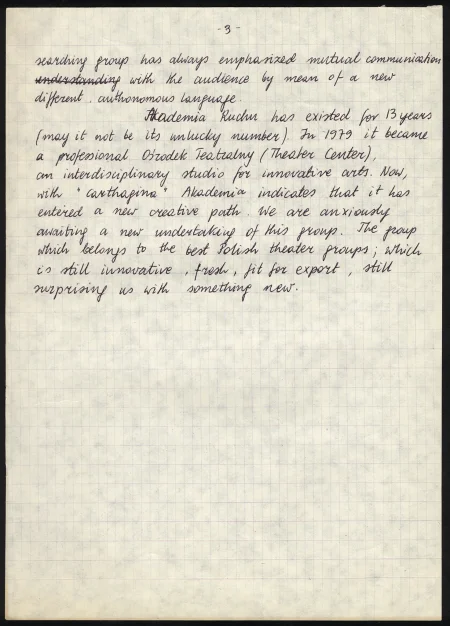 - 3 -
searching group has always emphasized mutual communication
understanding with the audience by mean of a new
different, authonomous language.
Akademia Ruchu has existed for 13 years
(may it not be its unlucky number). In 1979 it became
a professional Ośrodek Teatralny (Theater Center),
an interdisciplinary studio for innovative arts. Now,
with "Carthagina" Akademia indicates that it has
entered a new creative path. We are anxiously
awaiting a new undertaking of this group. The group
which belongs to the best Polish theater groups; which
is still innovative, fresh, fit for export, still
surprising us with something new.